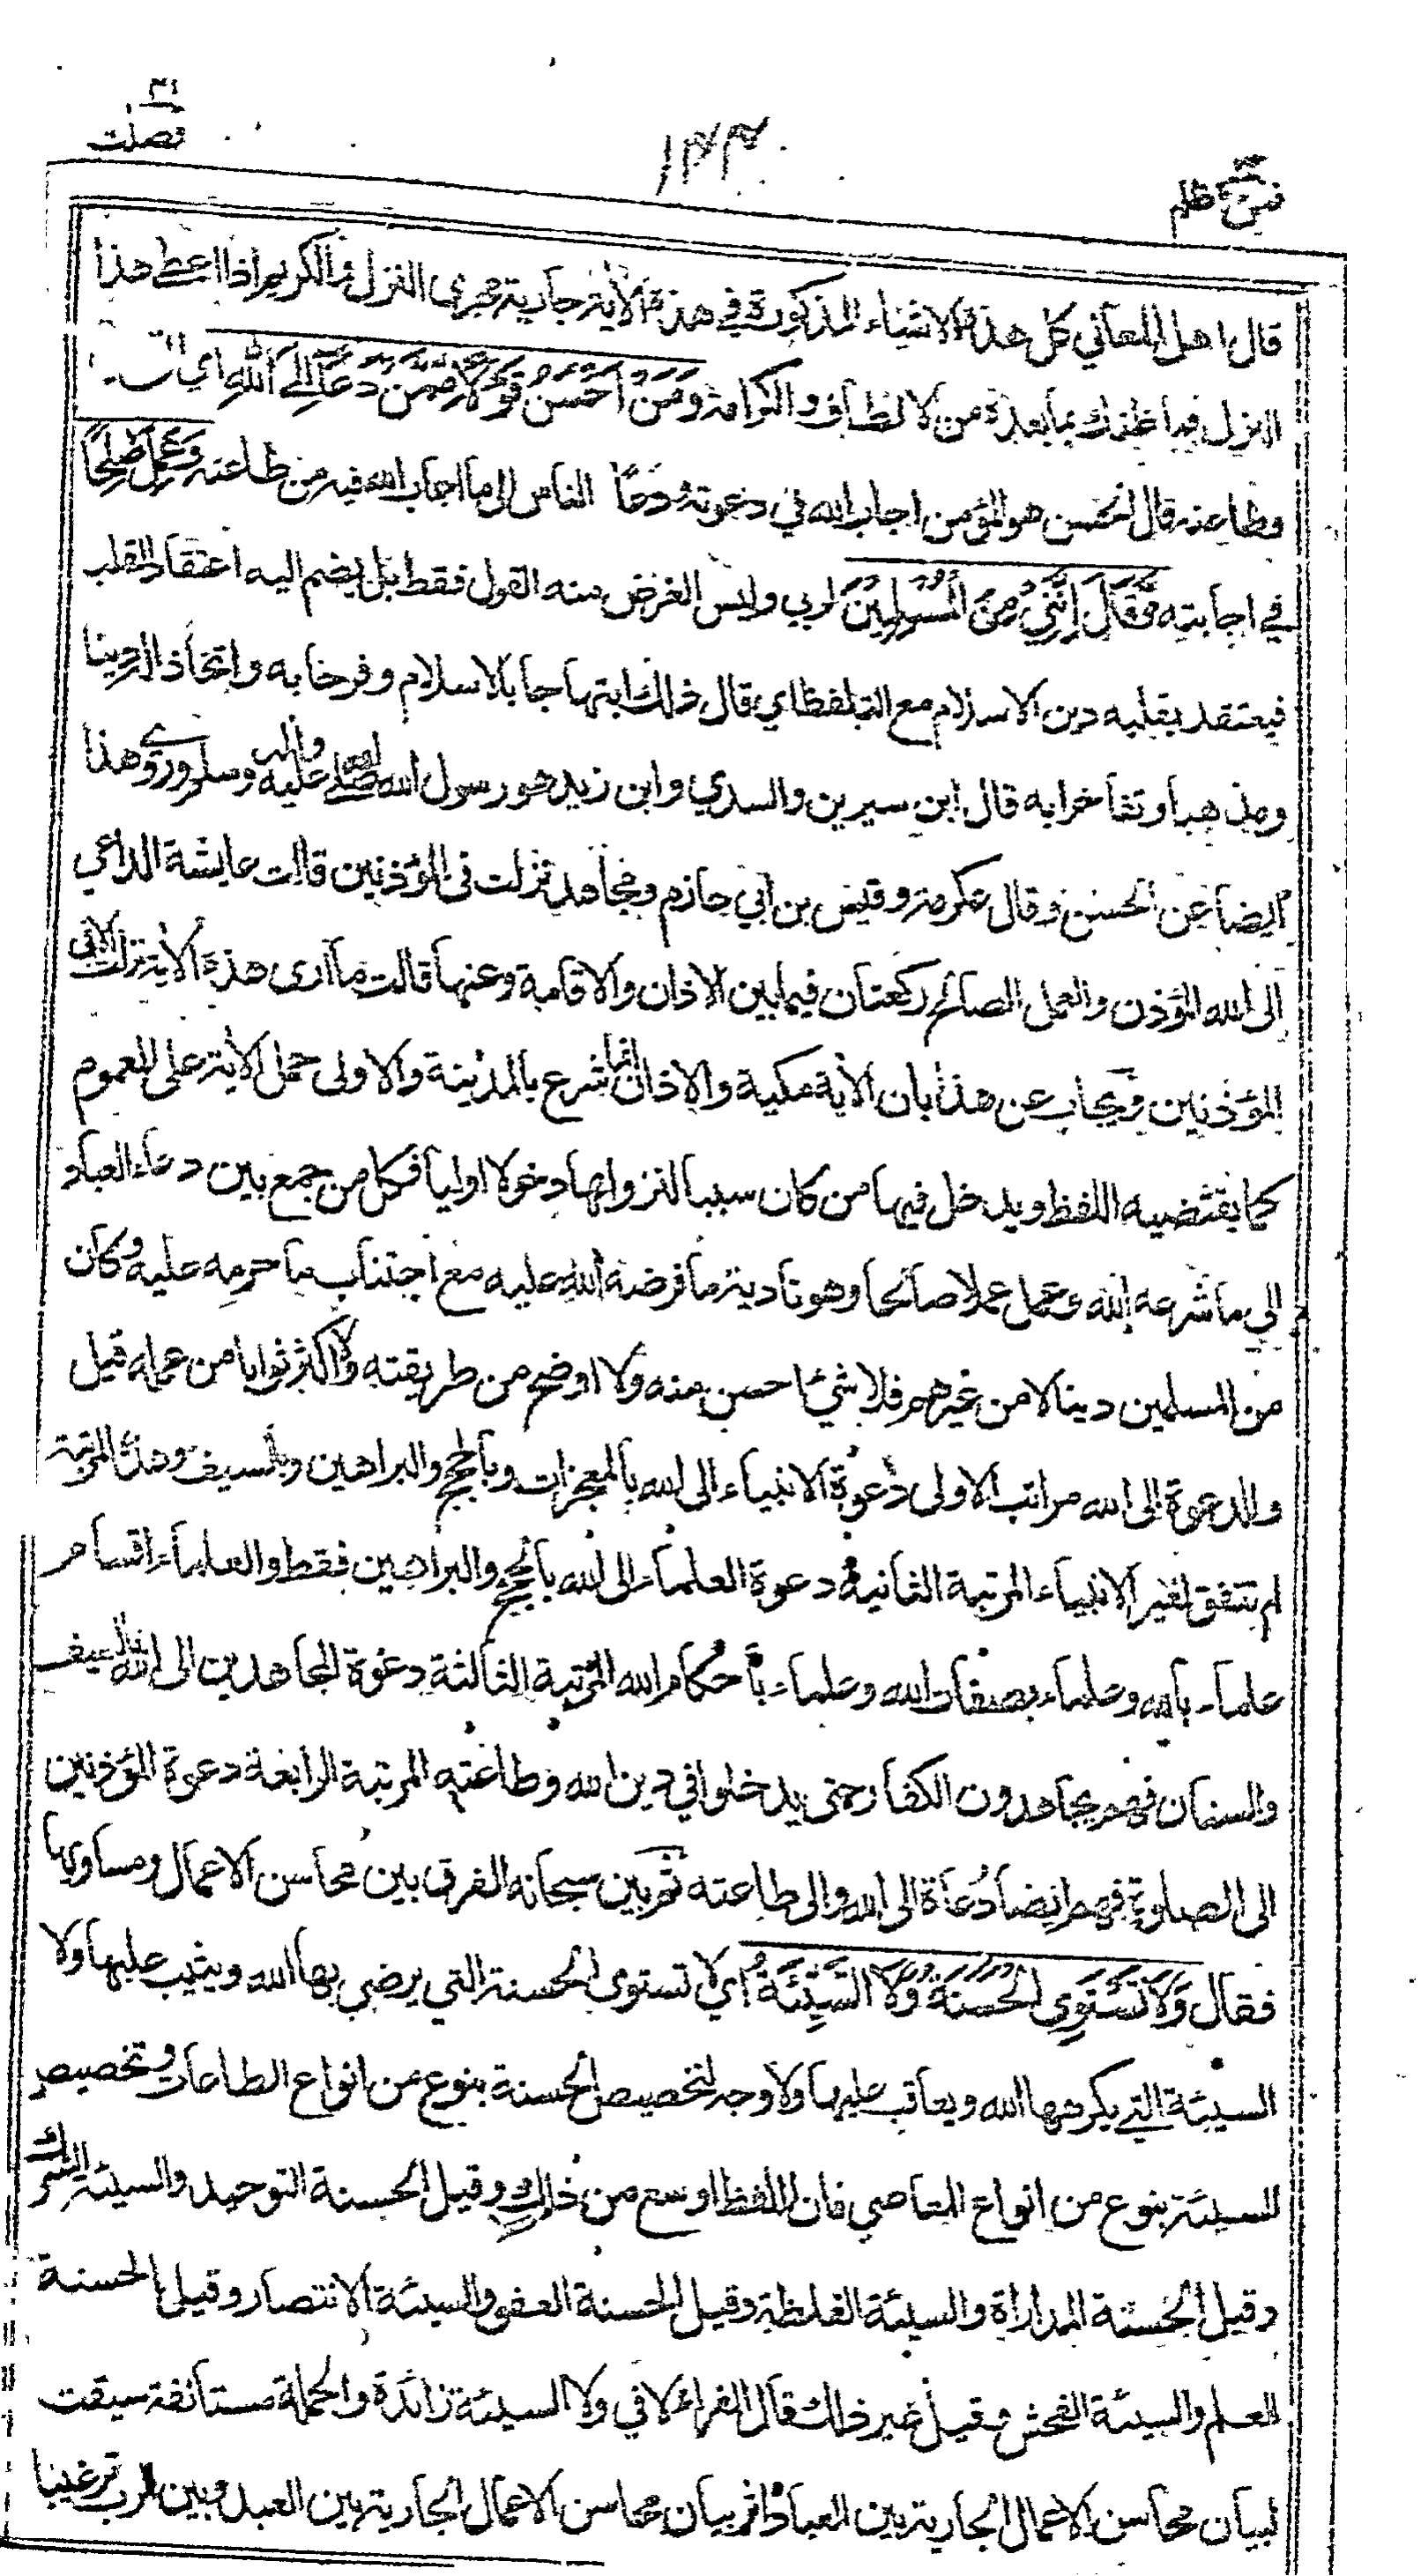 ٤١
فصلت
١٣٣
فمن اظلم
قال اهل المعاني كل هذه الاشياء المذكورة في هذه الآية جارية مجرى النزل والكريم اذا اعطى هذا
النزل فما ظنك بما بعده من الالطاف والكرامة ومَنْ اَحْسَنُ قَوْلًا مِمَّنْ دَعَا اِلَى اللهِ اي
وطاعته قال الحسن هو المؤمن اجاب الله في دعوته ودعا الناس الى ما اجاب الله فيه من طاعته وَعَمِلَ صٰلِحًا
في اجابته وَّقَالَ اِنَّنِيْ مِنَ الْمُسْلِمِيْنَ لربي وليس الغرض منه القول فقط بل يضم اليه اعتقاد القلب
فيعتقد بقلبه دين الاسلام مع التلفظ اي قال ذلك ابتهاجا بالاسلام وفرحا به واتخاذا له دينا
ومذهبا وتفاخرا به قال ابن سيرين والسدي وابن زيد هو رسول الله صلى الله عليه واله وسلم وروي هذا
ايضا عن الحسن وقال عكرمة وقيس بن ابي حازم ومجاهد نزلت في المؤذنين قالت عايشة الداعي
الى الله المؤذن والعمل الصالح ركعتان فيما بين الاذان والاقامة وعنها قالت ما ارى هذه الآية نزلت الا في
المؤذنين ويجاب عن هذا بان الآية مكية والاذان انما شرع بالمدينة والاولى حمل الآية على العموم
كما يقتضيه اللفظ ويدخل فيها من كان سببا لنزولها دخولا اوليا فكل من جمع بين دعاء العباد
الى ما شرعه الله وعمل عملا صالحا وهو تادية ما فرضه الله عليه مع اجتناب ما حرمه عليه وكان
من المسلمين دينا لا من غيرهم فلا شيء احسن منه ولا اوضح من طريقته ولا اكثر ثوابا من عمله قيل
وللدعوة الى الله مراتب الاولى دعوة الانبياء الى الله بالمعجزات وبالحجج والبراهين وبالسيف وهذه المرتبة
لم تتفق لغير الانبياء المرتبة الثانية دعوة العلماء الى الله بالحجج والبراهين فقط والعلماء اقسام
علماء بالله وعلماء بصفات الله وعلماء باحكام الله المرتبة الثالثة دعوة المجاهدين الى الله بالسيف
والسنان فهم يجاهدون الكفار حتى يدخلوا في دين الله وطاعته المرتبة الرابعة دعوة المؤذنين
الى الصلوة فهم ايضا دُعاة الى الله والى طاعته ثم بين سبحانه الفرق بين محاسن الاعمال ومساويها
فقال وَلَا تَسْتَوِي الْحَسَنَةُ وَلَا السَّيِّئَةُ اي لا تستوي الحسنة التي يرضى بها الله ويثيب عليها ولا
السيئة التي يكرهها الله ويعاقب عليها ولا وجه لتخصيص الحسنة بنوع من انواع الطاعات وتخصيص
السيئة بنوع من انواع المعاصي فان اللفظ اوسع من ذلك وقيل الحسنة التوحيد والسيئة الشرك
وقيل الحسنة المداراة والسيئة الغلظة وقيل الحسنة العفو والسيئة الانتصار وقيل الحسنة
العلم والسيئة الفحش وقيل غير ذلك قال الفراء لا في ولا السيئة زائدة والجملة مستانفة سيقت
لبيان محاسن الاعمال الجارية بين العباد اثر بيان محاسن الاعمال الجارية بين العبد وبين الرب ترغيبا